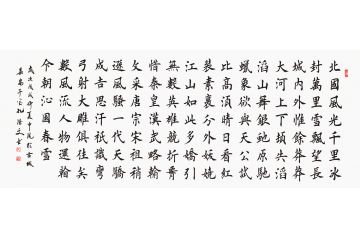 北國風光千里冰
封萬里雪飄望長
城內外惟餘莽莽
大河上下頓失滔
滔山舞銀蛇原馳
蠟象欲與天公試
比高須晴日看紅
裝素裹分外妖嬈
江山如此多嬌引
無數英雄競折腰
惜秦皇漢武略輸
文采唐宗宋祖稍
遜風騷一代天驕
成吉思汗祇識彎
弓射大雕俱往矣
數風流人物還看
今朝沁園春雪
歲次戊戌仲夏中浣於古城